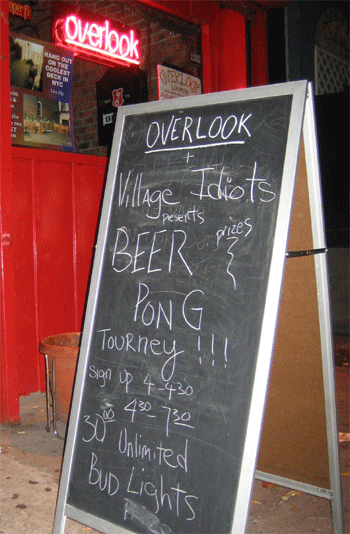 overlook
HANG OUT
ON THE
COOLEST
DECK IN
NYC
OVERLOOK
OVERLOOK
+
Village Idiots
presents
BEER prizes
PONG
Tourney !!!
Sign up 4-4:30
4:30-7:30
30.00 Unlimited
Bud Lights